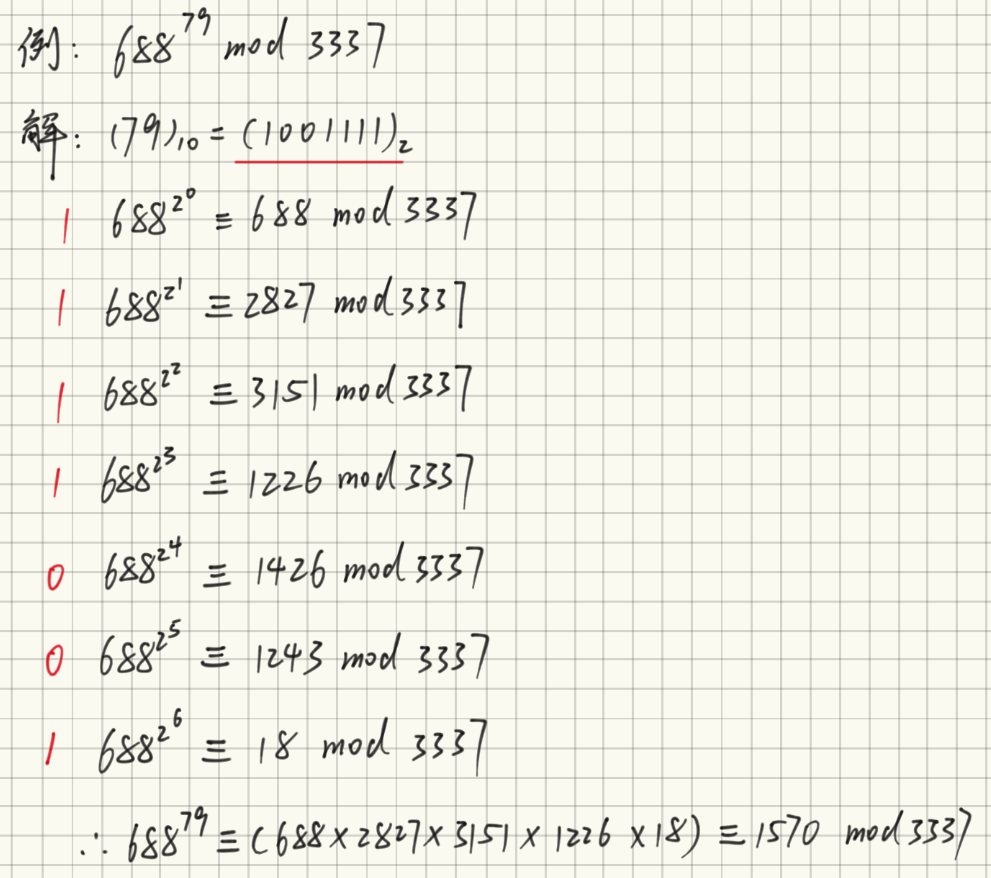 例: 688^79 mod 3337
解: (79)₁₀ = (1001111)₂
1 688^2^0 ≡ 688 mod 3337
1 688^2^1 ≡ 2827 mod 3337
1 688^2^2 ≡ 3151 mod 3337
1 688^2^3 ≡ 1226 mod 3337
0 688^2^4 ≡ 1426 mod 3337
0 688^2^5 ≡ 1243 mod 3337
1 688^2^6 ≡ 18 mod 3337
∴ 688^79 ≡ (688×2827×3151×1226×18) ≡ 1570 mod 3337